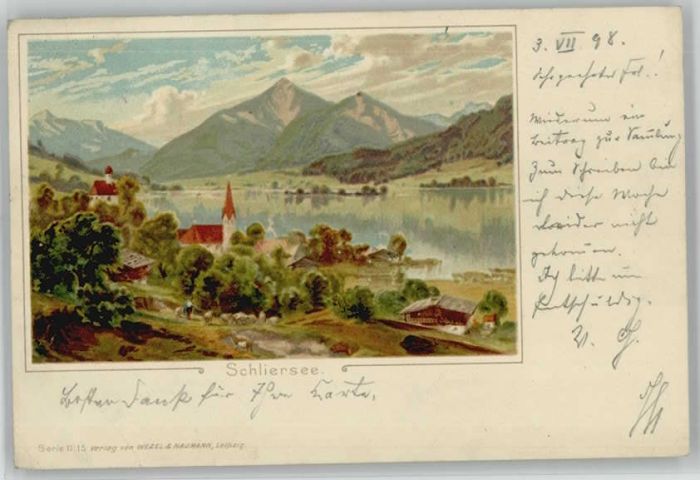 3. VII 98.
Sehr geehrtes Frl.!
Wiederum ein
Beitrag zur Samlung
Zum Schreiben bin
ich diese Woche
leider nicht
gekommen.
Ich bitte um
Entschuldig.
Schliersee.
Besten Dank für Ihre Karte.
Serie II. 15 Verlag von WEZEL & NAUMANN, Leipzig.